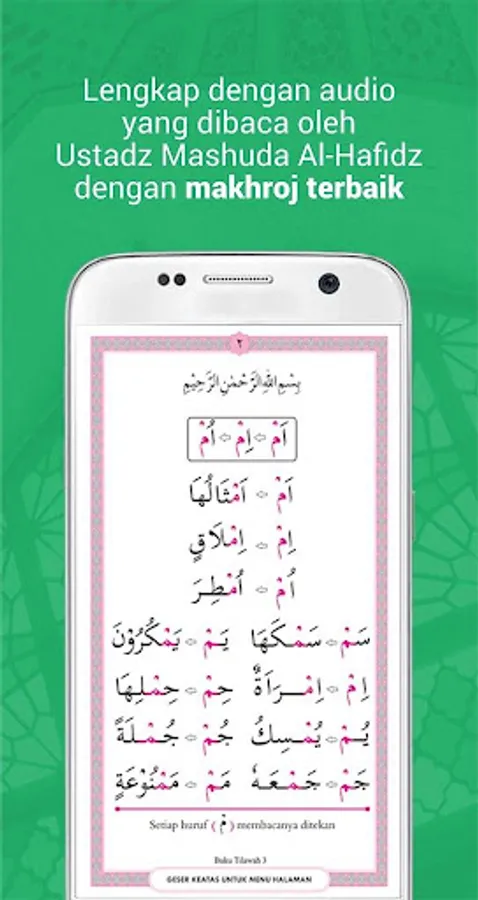 Lengkap dengan audio
yang dibaca oleh
Ustadz Mashuda Al-Hafidz
dengan makhroj terbaik
٢
بِسْمِ اللّٰهِ الرَّحْمٰنِ الرَّحِيْمِ
اَمْ ⇦ اِمْ ⇦ اُمْ
اَمْ ⇦ اَمْثَالُهَا
اِمْ ⇦ اِمْلَاقٍ
اُمْ ⇦ اُمْطِرَ
سَمْ ⇦ سَمْكَهَا يَمْ ⇦ يَمْكُرُوْنَ
اِمْ ⇦ اِمْرَاَةٌ حِمْ ⇦ حِمْلِهَا
يُمْ ⇦ يُمْسِكُ جُمْ ⇦ جُمْلَةً
جَمْ ⇦ جَمْعَهٗ مَمْ ⇦ مَمْنُوْعَةٍ
Setiap huruf ( مْ ) membacanya ditekan
Buku Tilawah 3
GESER KEATAS UNTUK MENU HALAMAN